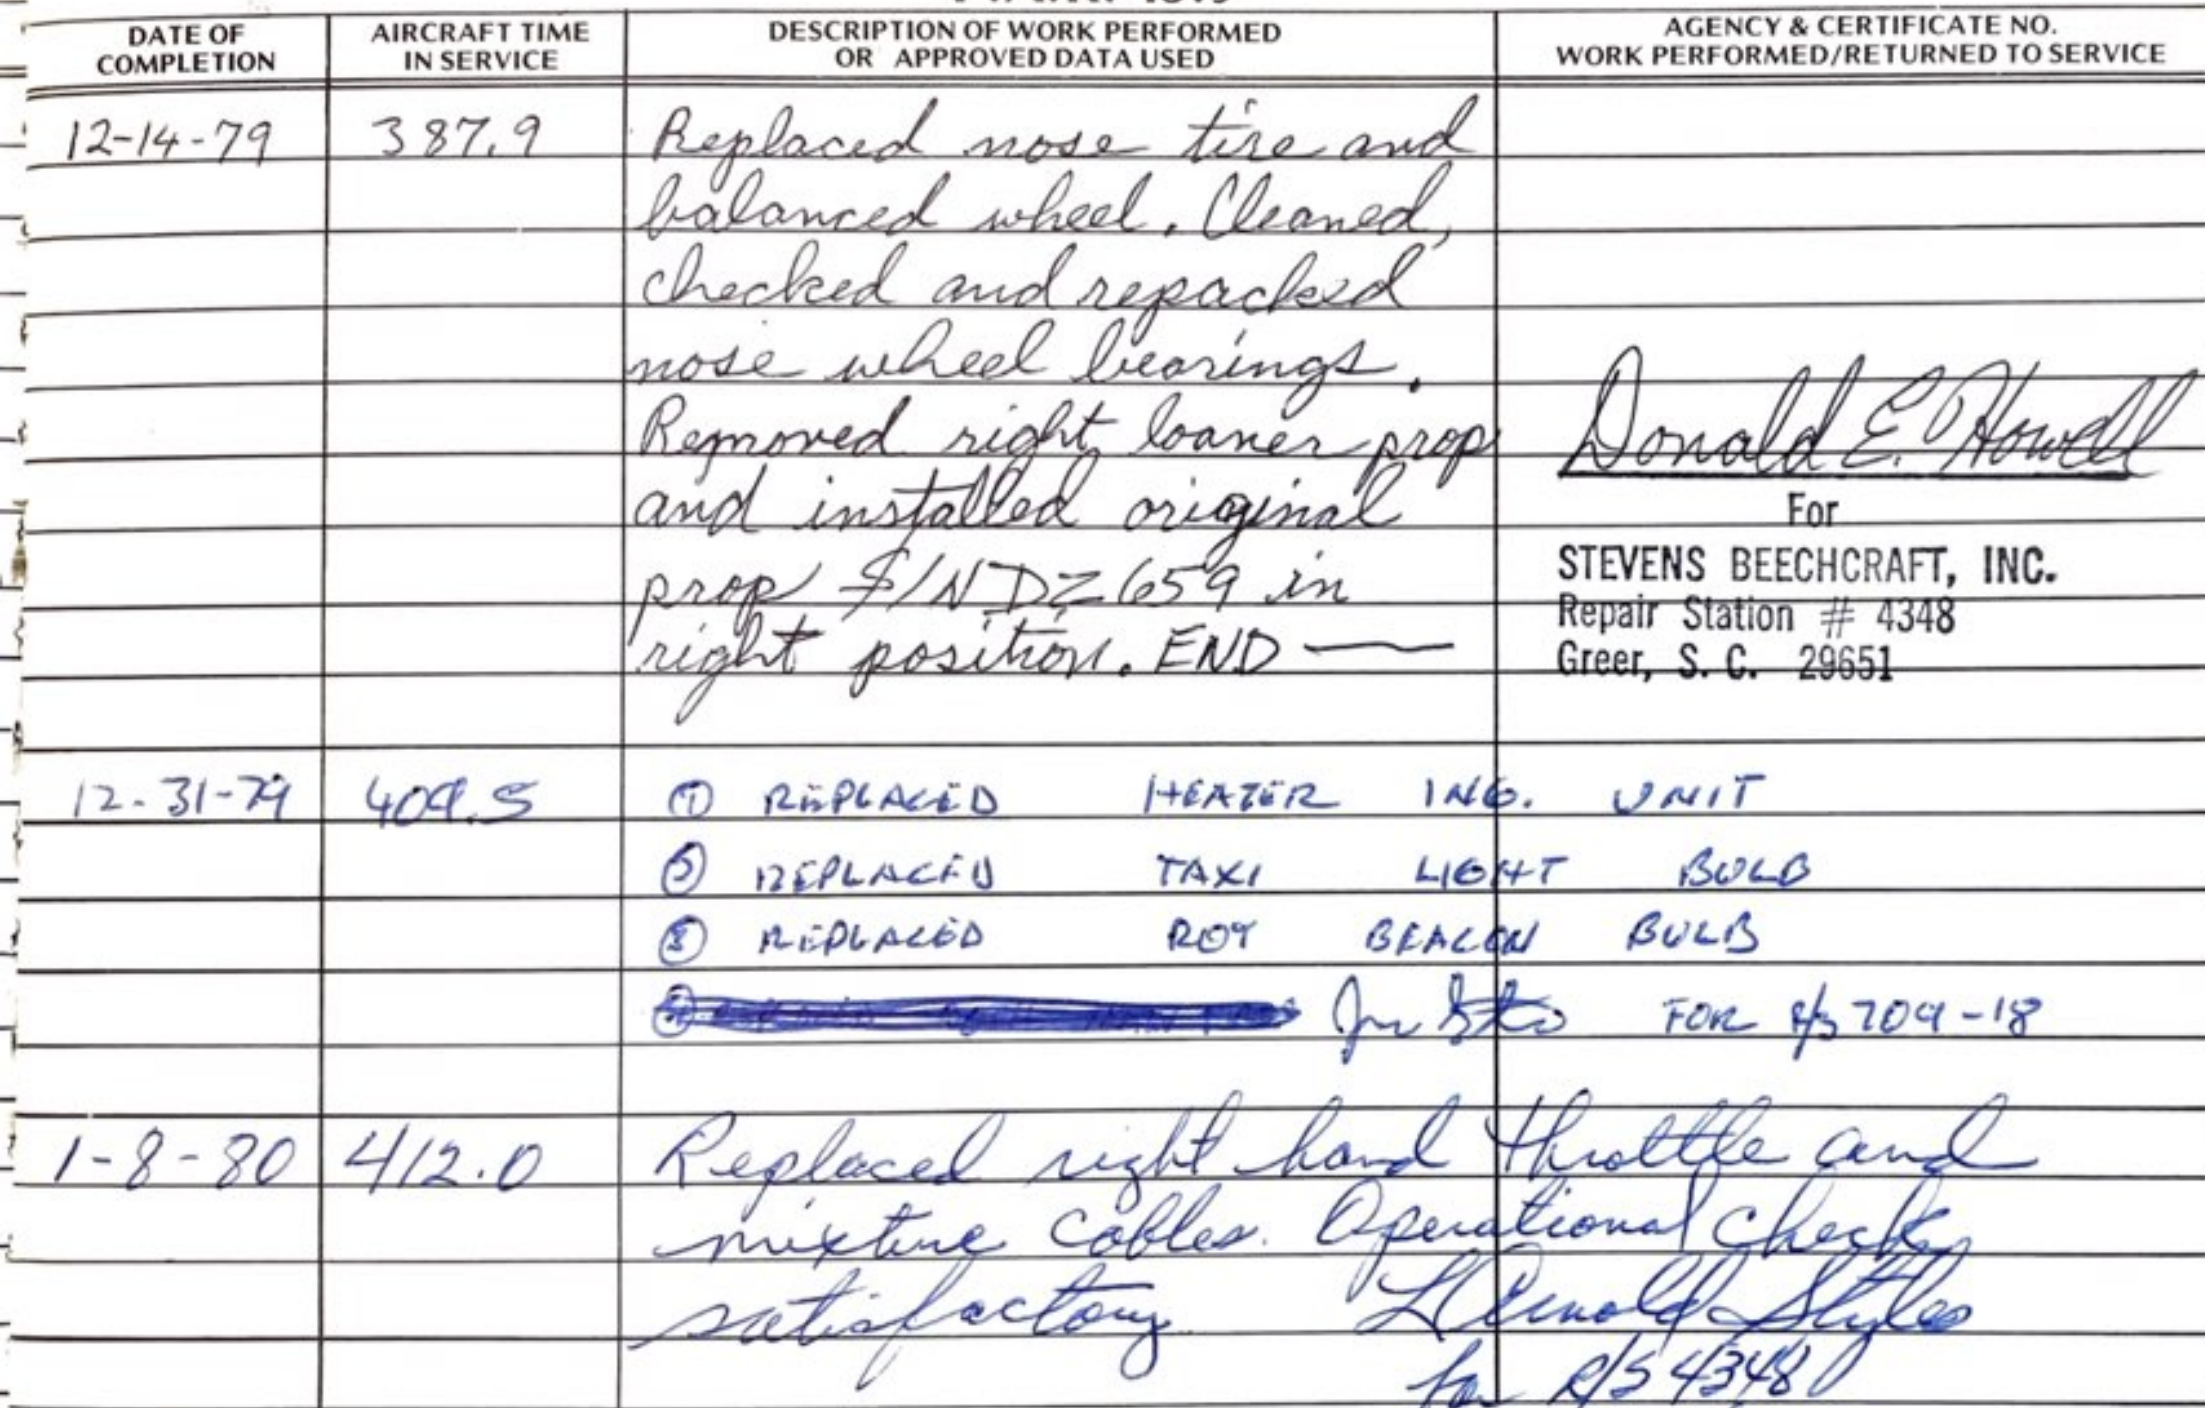 DATE OF COMPLETION
AIRCRAFT TIME IN SERVICE
DESCRIPTION OF WORK PERFORMED OR APPROVED DATA USED
AGENCY & CERTIFICATE NO. WORK PERFORMED/RETURNED TO SERVICE
12-14-79 387.9 Replaced nose tire and
balanced wheel. Cleaned,
checked and repacked
nose wheel bearings.
Removed right loaner prop
and installed original
prop S/N DZ659 in
right position. END —
Donald E. Howell
For
STEVENS BEECHCRAFT, INC.
Repair Station # 4348
Greer, S. C. 29651
12-31-79 409.5 ① REPLACED HEATER ING. UNIT
② REPLACED TAXI LIGHT BULB
③ REPLACED ROT BEACON BULB
④ FOR R/S 709-18
1-8-80 412.0 Replaced right hand throttle and
mixture cables. Operational check
satisfactory L Arnold Styles
for R/S 4348